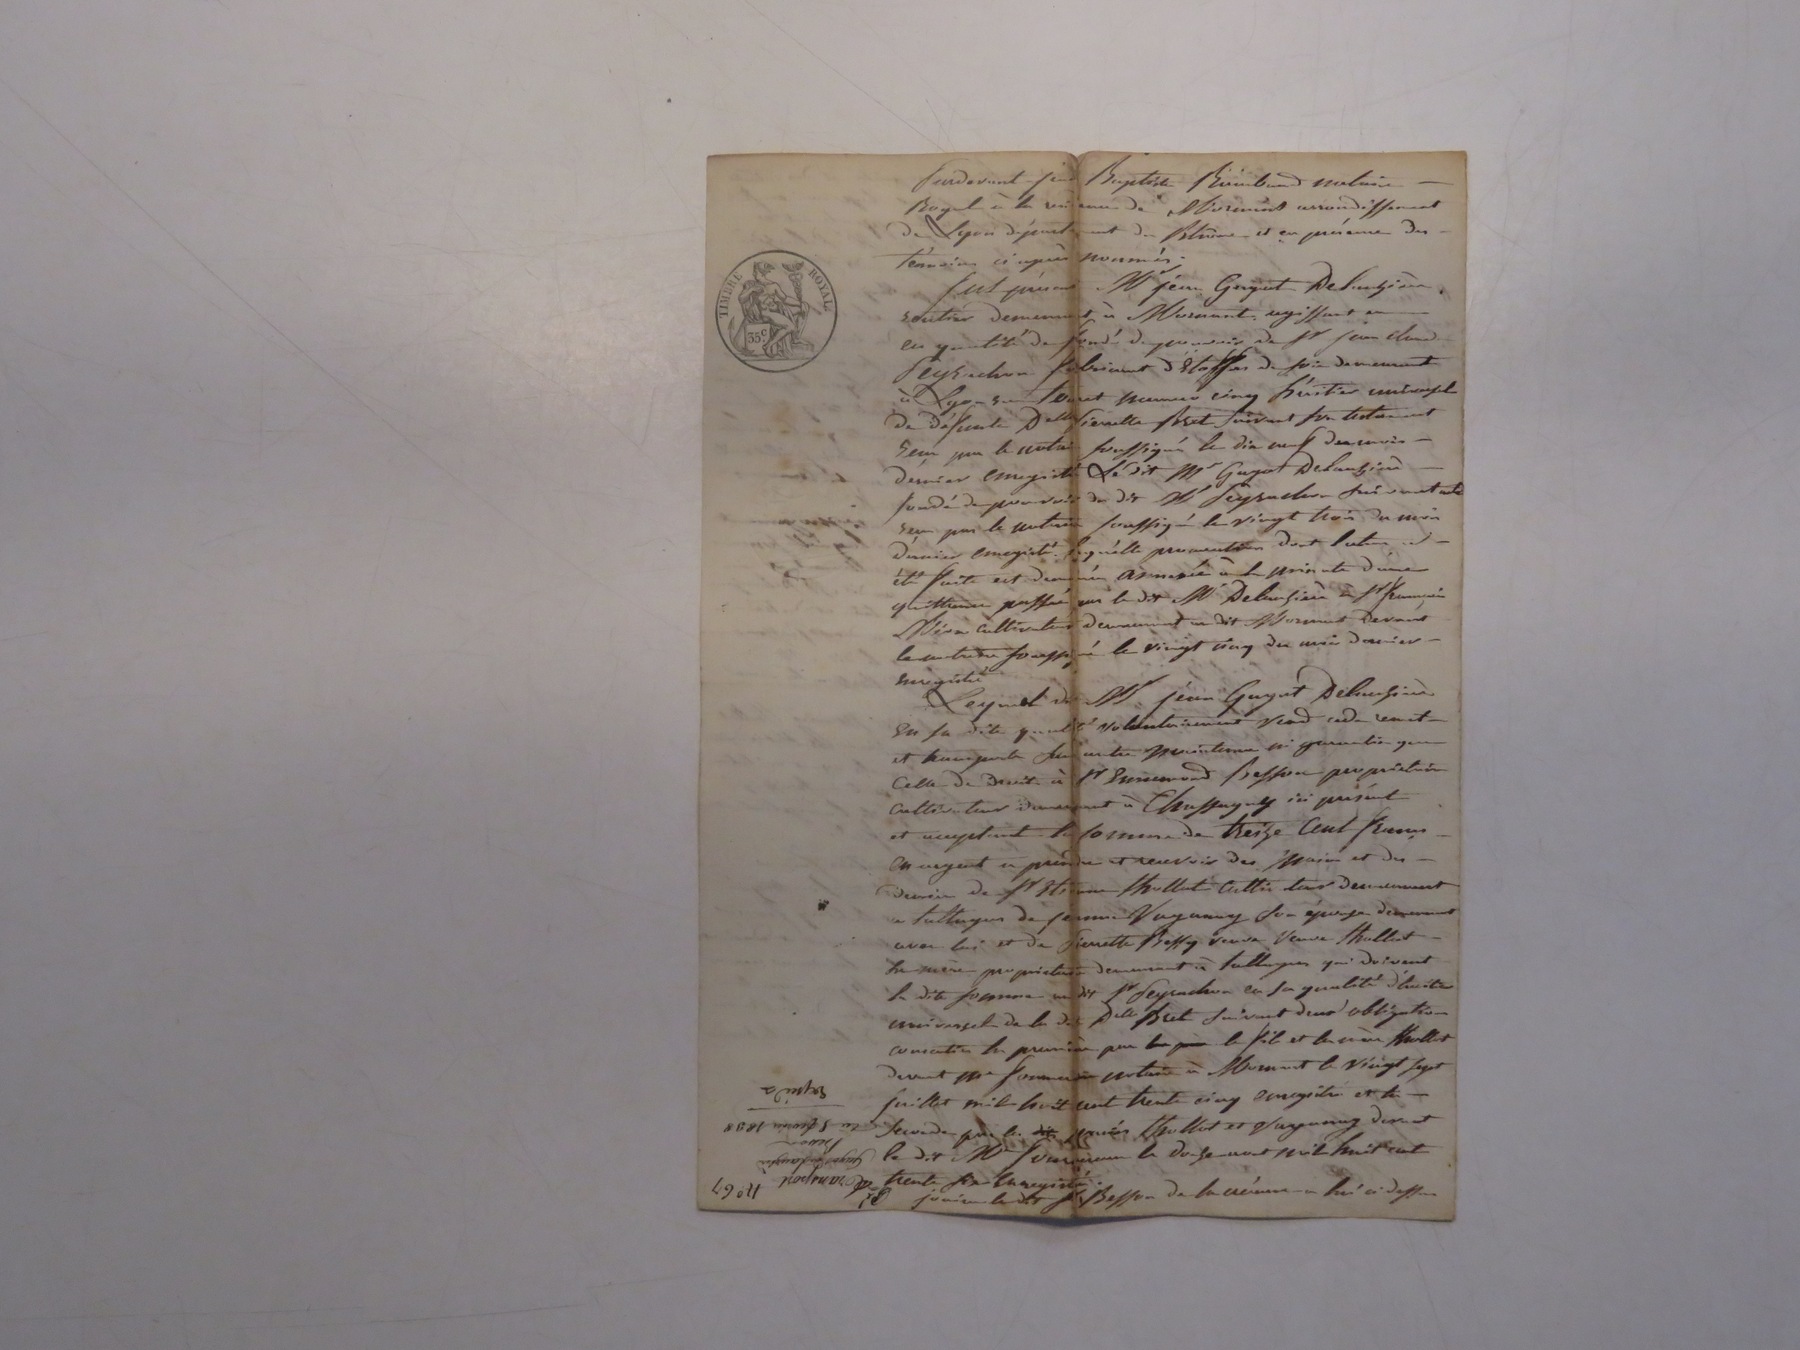 TIMBRE ROYAL
35c
Pardevant Jean Baptiste notaire
Royal à la résidence de Mornant arrondissement
de Lyon département du Rhône et en présence des
témoins ci après nommés.
fut présent Mr jean Guyot Delauzière
rentier demeurant à Mornant, agissant en
en qualité de fondé de pouvoir de Sr jean
Peyrachon fabricant d'étoffes de soie demeurant
à Lyon rue numéro cinq héritier universel
de défunte Delle Pierrette Bret suivant son testament
reçu par le notaire soussigné le dix neuf du mois
dernier enregistré Le dit Mr Guyot Delauzière
fondé de pouvoir du dit Mr Peyrachon suivant acte
reçu par le notaire soussigné le vingt trois du mois
dernier enregistré. Laquelle procuration dont
été faite est demeurée annexée à la minute d'une
quittance passée par le dit Mr Delauzière à Sr françois
cultivateur demeurant au dit Mornant devant
le notaire soussigné le vingt cinq du mois dernier
enregistré
Lequel dit Mr jean Guyot Delauzière
En sa dite qualité volontairement vend cede remet
et transporte sans autre maintenue ni garantie que
Celle de Droit à Sr Ennemond Besson propriétaire
cultivateur demeurant à Chassagny ici présent
et acceptant la somme de treize Cent francs
en argent à prendre et recevoir des mains et des
deniers de Sr Etienne Thollot cultivateur demeurant
a talluyes de jeanne Vaganay son épouse demeurant
avec lui et de Pierrette Bessy veuve Thollot
sa mère propriétaire demeurant à talluyes qui doivent
la dite somme au dit Sr Peyrachon en sa qualité d'héritier
universel de la dite Delle Bret suivant deux obligations
consenties la première par le fils et la mère Thollot
devant Me notaire à Mornant le vingt sept
juillet mil huit cent trente cinq enregistré et la
seconde par les mariés Thollot et Vaganay devant
le dit Me le douze aout mil huit cent
trente six Enregistré.
jouira le dit Sr Besson de la créance a lui ci dessus
No 67
transport
Guyot Delauzière
Besson
du 5 février 1838
Expédié